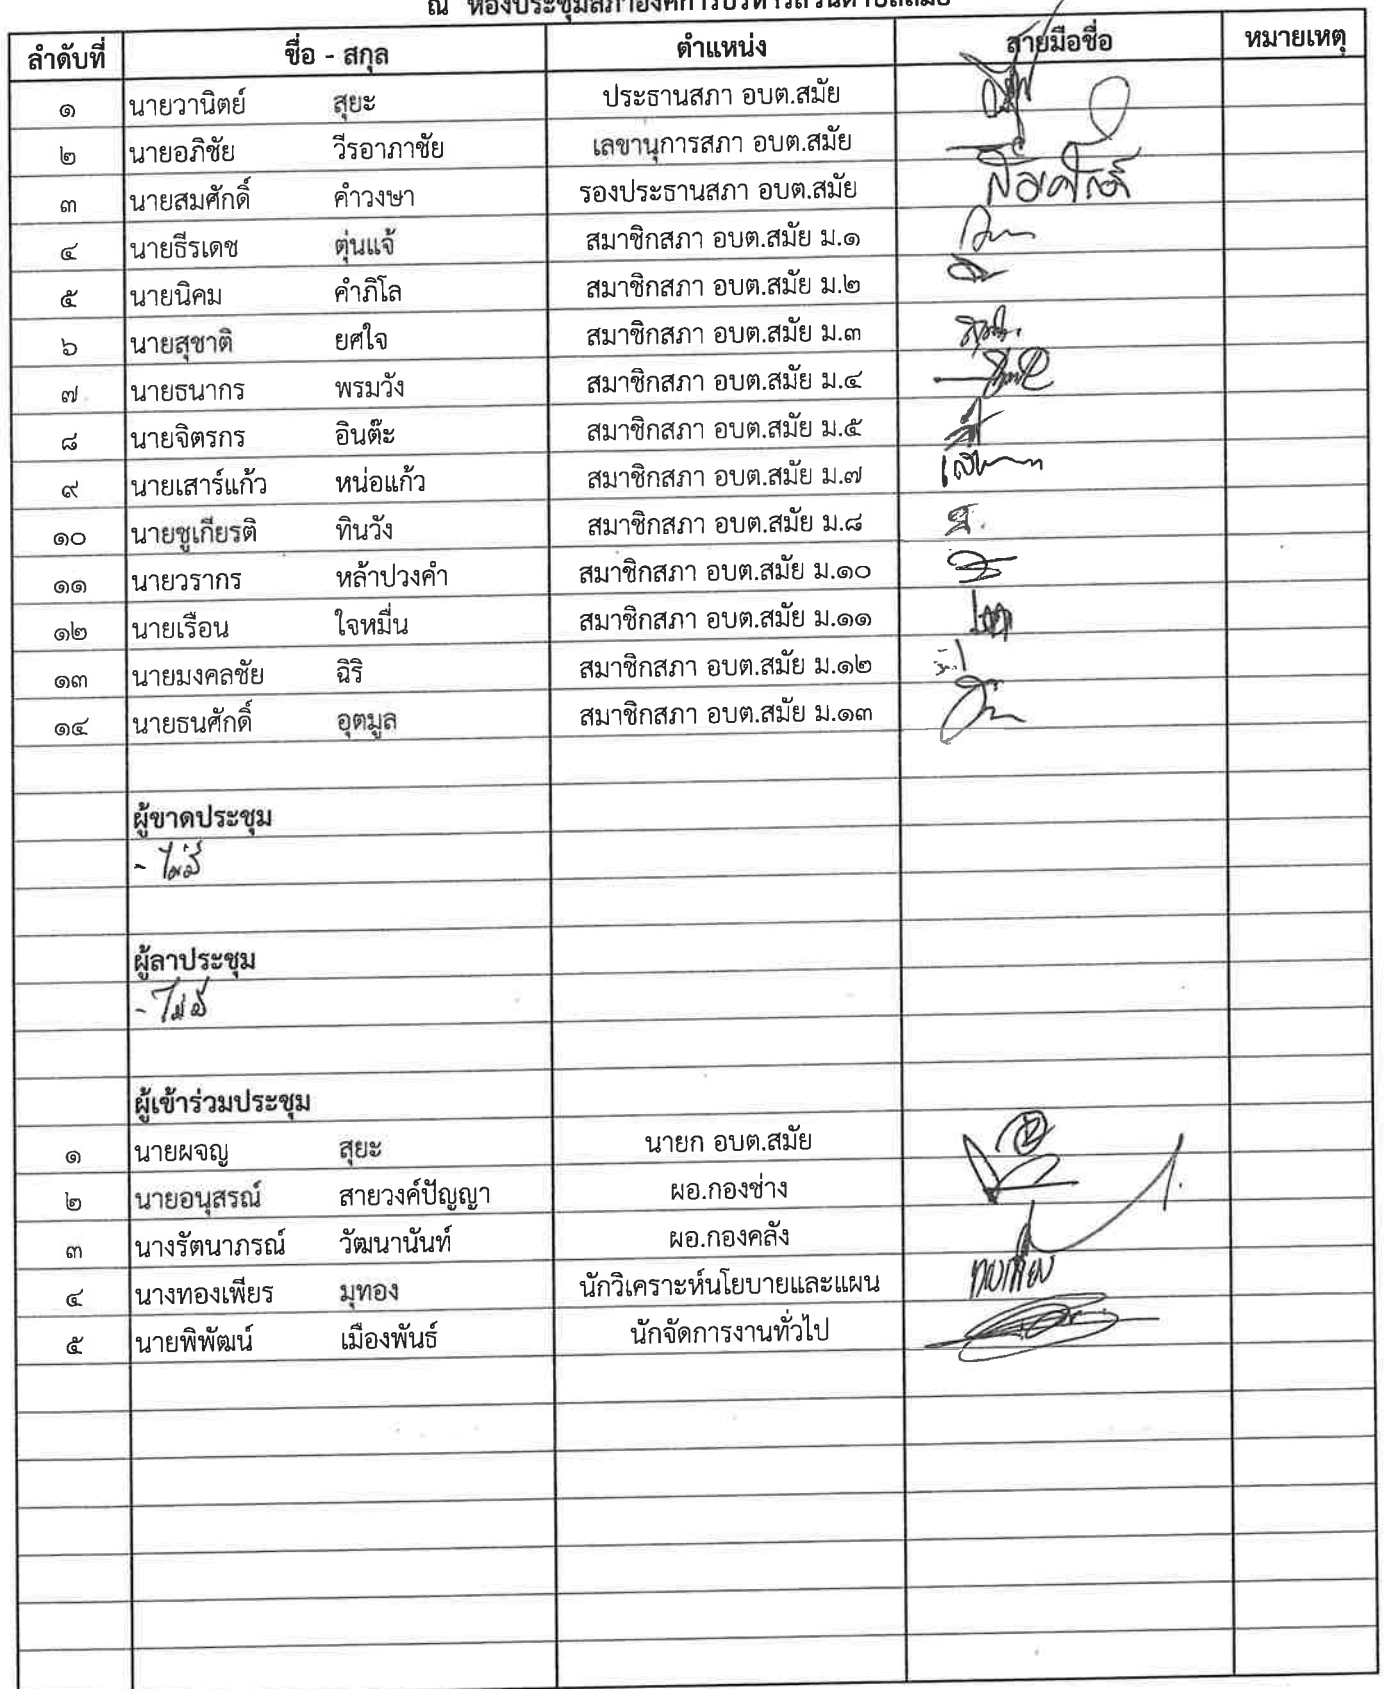 ณ ห้องประชุมสภาองค์การบริหารส่วนตำบลสมัย
ลำดับที่ ชื่อ - สกุล ตำแหน่ง ลายมือชื่อ หมายเหตุ
๑ นายวานิตย์ สุยะ ประธานสภา อบต.สมัย
๒ นายอภิชัย วีรอาภาชัย เลขานุการสภา อบต.สมัย
๓ นายสมศักดิ์ คำวงษา รองประธานสภา อบต.สมัย
๔ นายธีรเดช ตุ่นแจ้ สมาชิกสภา อบต.สมัย ม.๑
๕ นายนิคม คำภิโล สมาชิกสภา อบต.สมัย ม.๒
๖ นายสุชาติ ยศใจ สมาชิกสภา อบต.สมัย ม.๓
๗ นายธนากร พรมวัง สมาชิกสภา อบต.สมัย ม.๔
๘ นายจิตรกร อินต๊ะ สมาชิกสภา อบต.สมัย ม.๕
๙ นายเสาร์แก้ว หน่อแก้ว สมาชิกสภา อบต.สมัย ม.๗
๑๐ นายชูเกียรติ ทินวัง สมาชิกสภา อบต.สมัย ม.๘
๑๑ นายวรากร หล้าปวงคำ สมาชิกสภา อบต.สมัย ม.๑๐
๑๒ นายเรือน ใจหมื่น สมาชิกสภา อบต.สมัย ม.๑๑
๑๓ นายมงคลชัย ฉิริ สมาชิกสภา อบต.สมัย ม.๑๒
๑๔ นายธนศักดิ์ อุตมูล สมาชิกสภา อบต.สมัย ม.๑๓
ผู้ขาดประชุม
- ไม่มี
ผู้ลาประชุม
- ไม่มี
ผู้เข้าร่วมประชุม
๑ นายผจญ สุยะ นายก อบต.สมัย
๒ นายอนุสรณ์ สายวงค์ปัญญา ผอ.กองช่าง
๓ นางรัตนาภรณ์ วัฒนานันท์ ผอ.กองคลัง
๔ นางทองเพียร มุทอง นักวิเคราะห์นโยบายและแผน ทองเพียร
๕ นายพิพัฒน์ เมืองพันธ์ นักจัดการงานทั่วไป